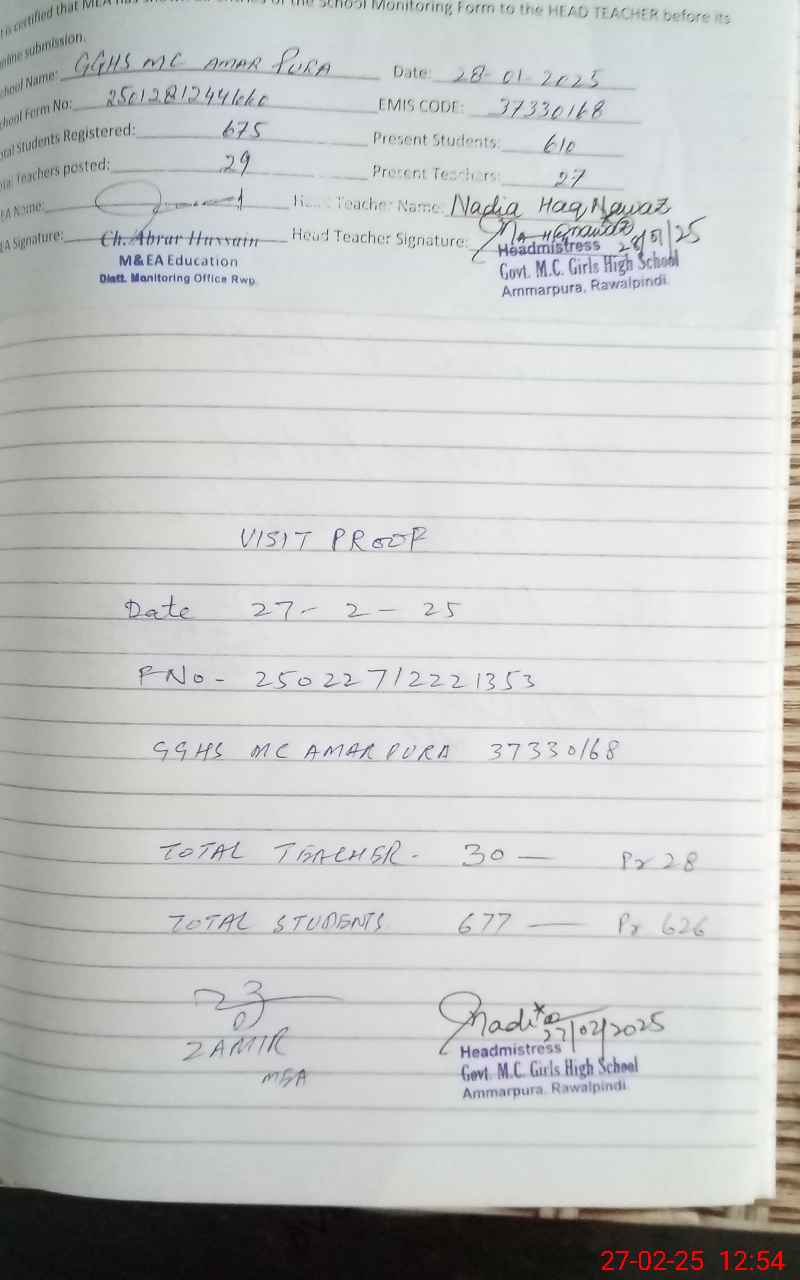 to certified that MEA has shown all entries of the School Monitoring Form to the HEAD TEACHER before its
online submission.
School Name: GGHS MC AMAR PURA Date: 28-01-2025
School Form No: EMIS CODE: 37330168
Total Students Registered: 675 Present Students: 610
Teachers posted: 29 Present Teachers: 27
EA Name: Head Teacher Name: Nadia Haq Nawaz
EA Signature: Ch. Abrar Hussain Head Teacher Signature: 28/01/25
M&EA Education Headmistress
Distt. Monitoring Office Rwp. Govt. M.C. Girls High School
Ammarpura, Rawalpindi.
VISIT PROOF
Date 27-2-25
FNo- 25022712221353
GGHS MC AMAR PURA 37330168
TOTAL TEACHER- 30 — Pr 28
TOTAL STUDENTS 677 — Pr 626
ZAMIR
MEA
27/02/2025
Headmistress
Govt. M.C. Girls High School
Ammarpura, Rawalpindi.
27-02-25 12:54